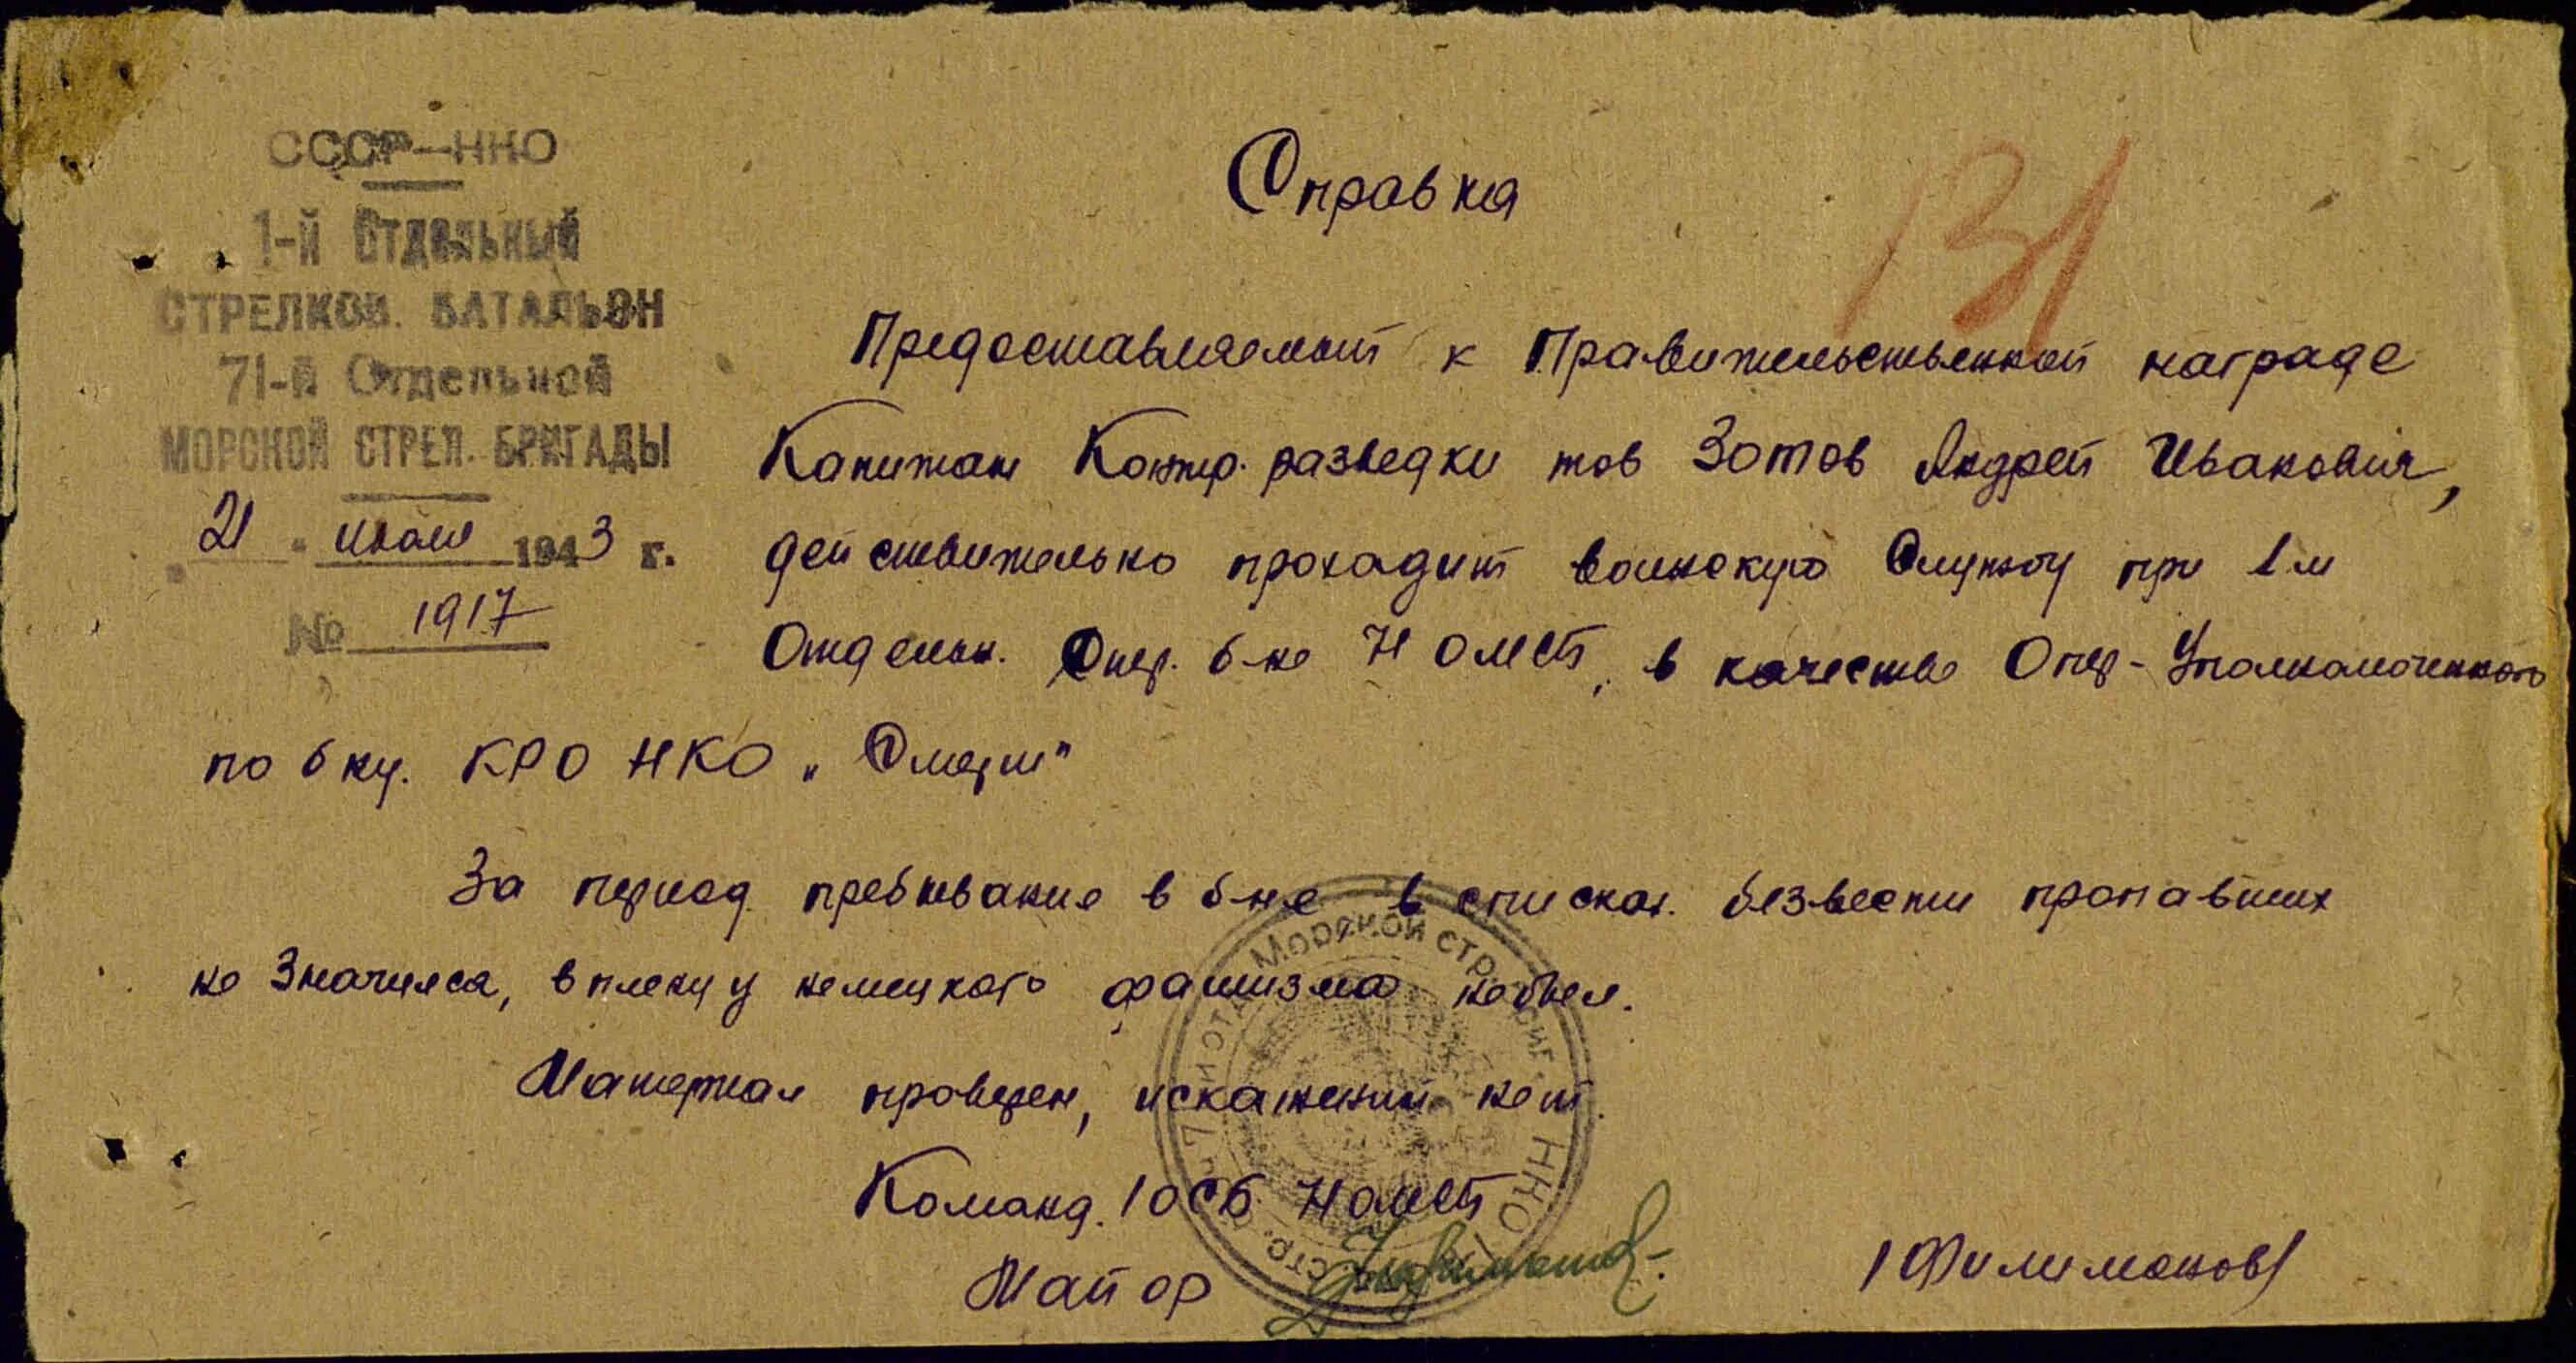 СССР—НКО
1-й Отдельный
СТРЕЛКОВ. БАТАЛЬОН
71-й Отдельной
МОРСКОЙ СТРЕЛ. БРИГАДЫ
21 " июля 1943 г.
№ 1917
Справка
131
Предоставляемый к Правительственной награде
Капитан Контр. разведки тов Зотов Андрей Иванович,
действительно проходит воинскую службу при 1м
Отдельн. Стр. б-не 71 ОМСБ, в качестве Опер-Уполномоченного
по б ну. КРО НКО „Смерш"
За период пребывания в б-не в списках. безвести пропавших
не значился, в плену у немецкого фашизма не был.
Материал проверен, искажений нет.
Команд. 1 ОСБ 71 ОМСБ
Майор /Филимонов/
Морской стр. бриг. НКО